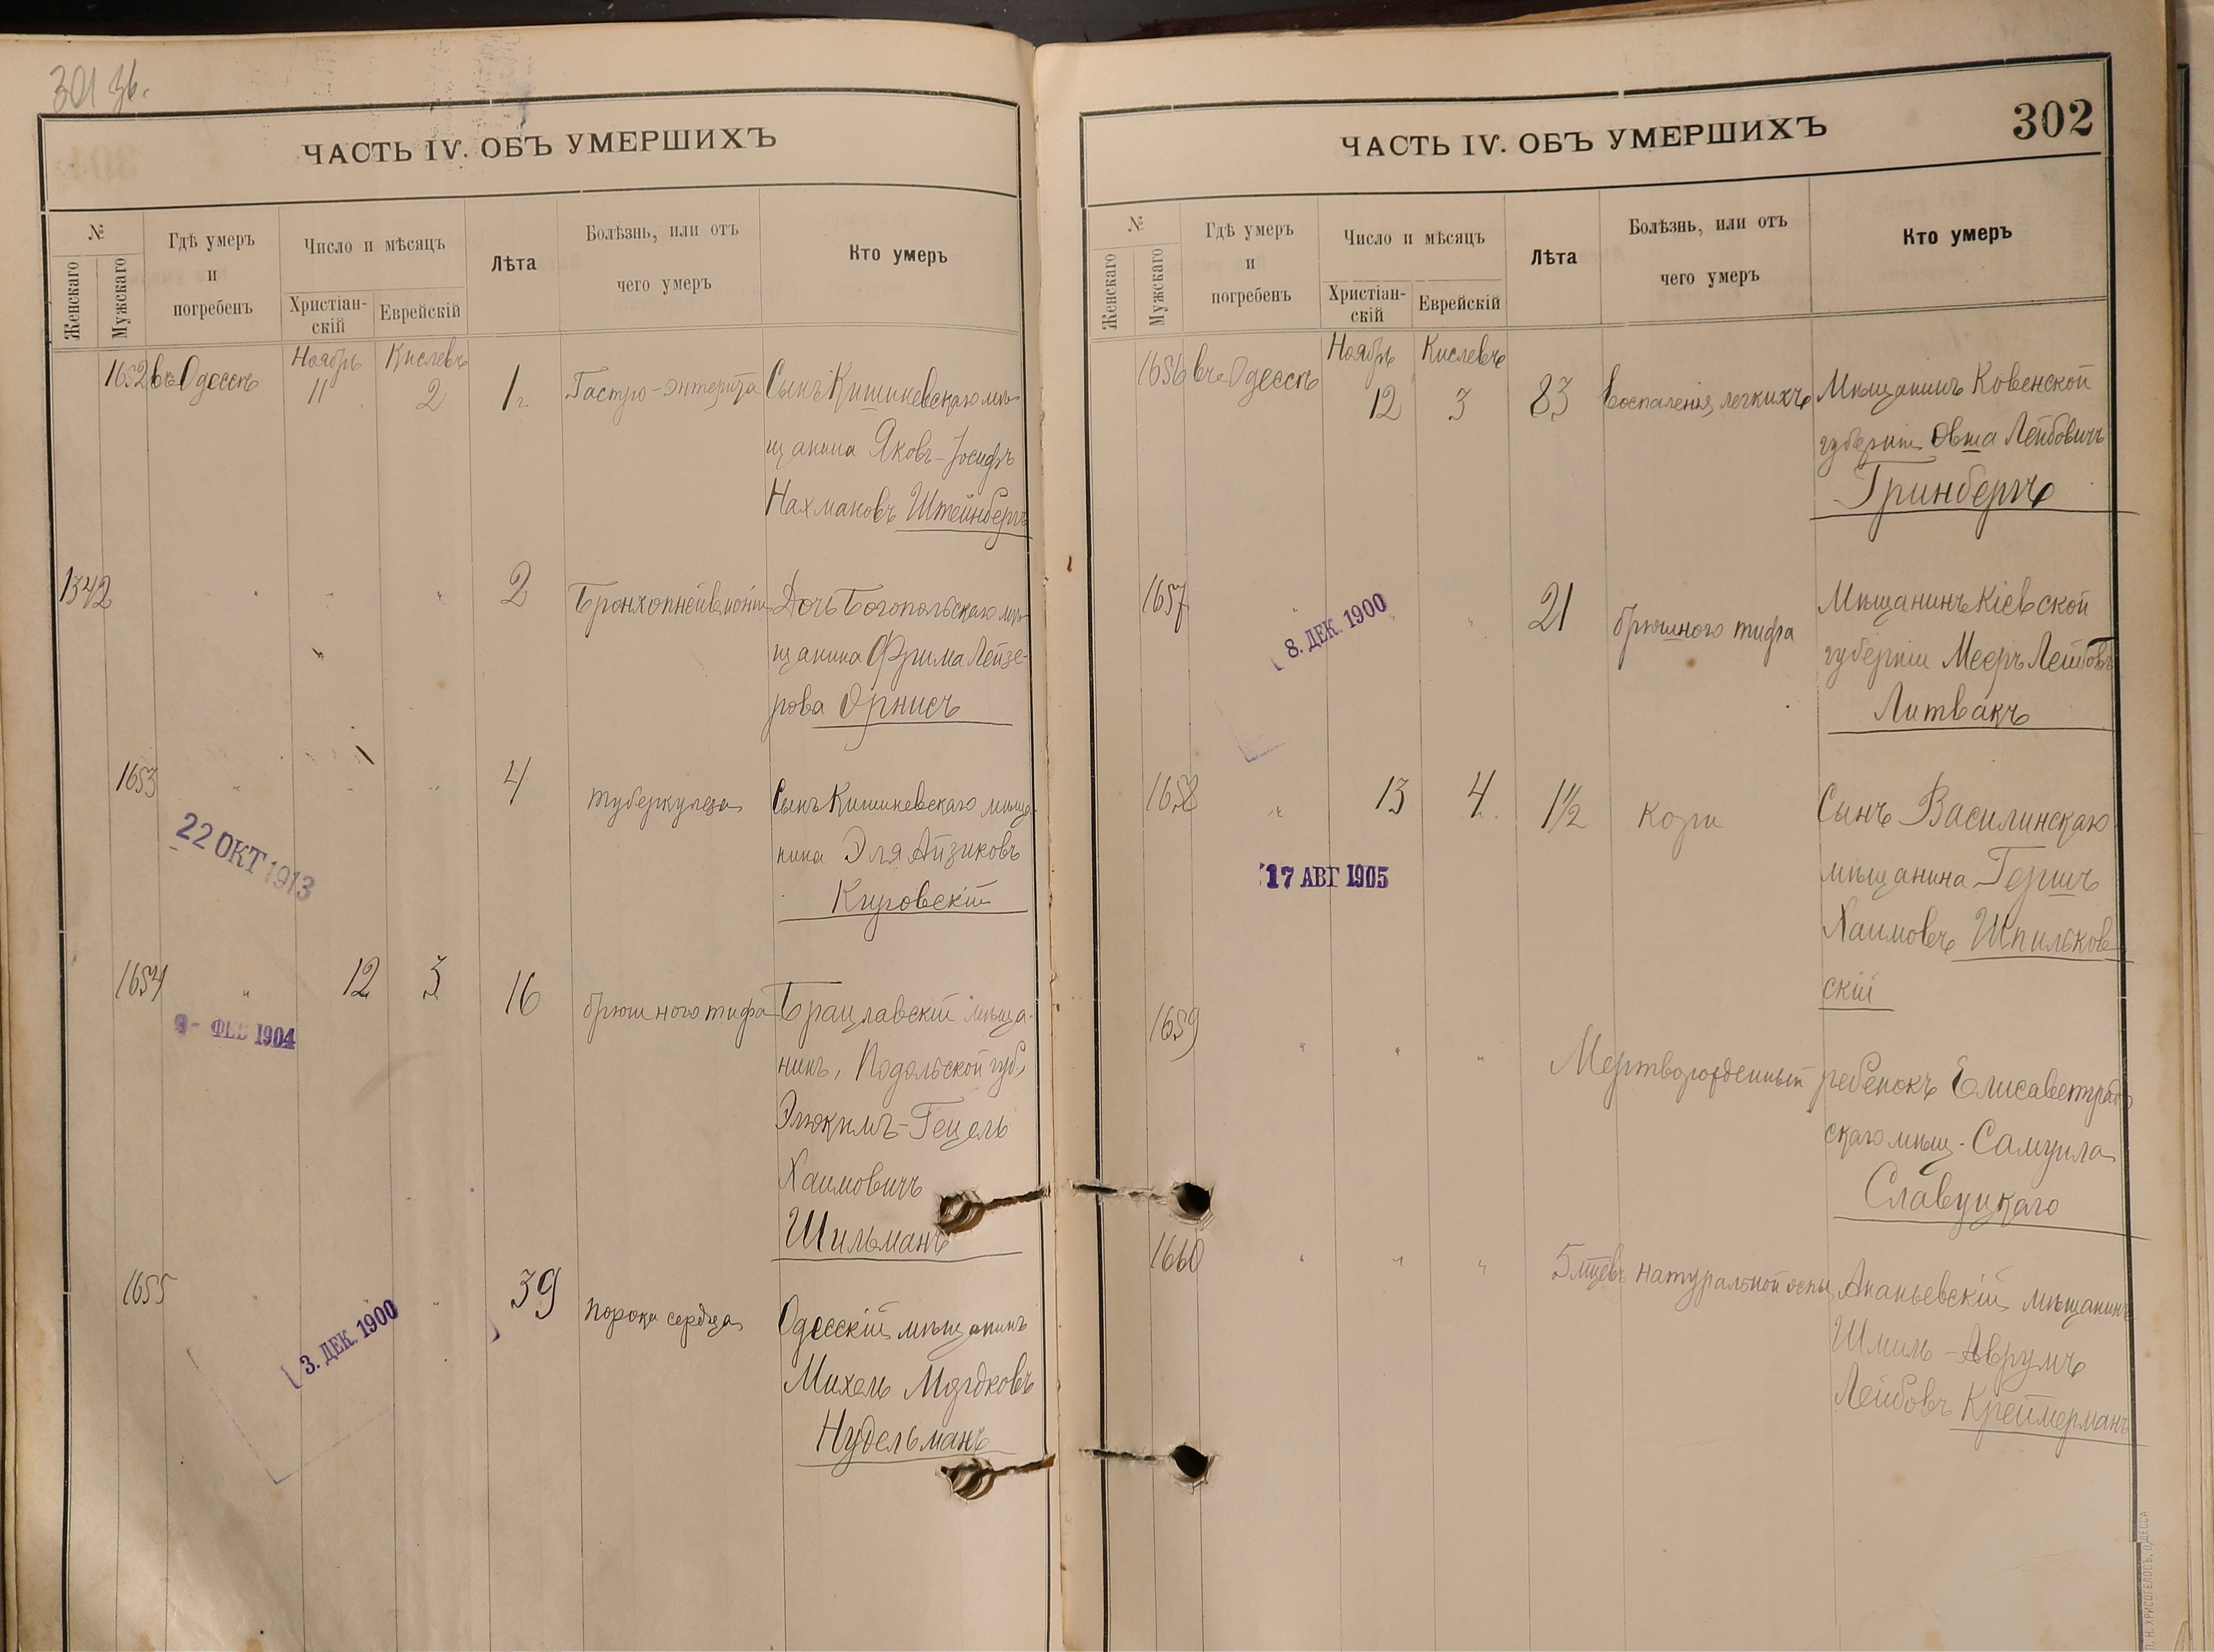 301 зв.
ЧАСТЬ IV. ОБЪ УМЕРШИХЪ
№
Женскаго
Мужскаго
Гдѣ умеръ
и
погребенъ
Число и мѣсяцъ
Христіан-
скій
Еврейскій
Лѣта
Болѣзнь, или отъ
чего умеръ
Кто умеръ
Ноябрь Кислевъ
1652 въ Одессѣ 11 2 1 г. Гастро-энтерита Сынъ Кишиневскаго мѣ-
щанина Яковъ-Іосифъ
Нахмановъ Штейнбергъ
1342 " " " 2 Бронхопнеймоніи Дочь Богопольскаго мѣ-
щанина Фрима Лейзе-
рова Орнисъ
1653 " " " 4 туберкулеза Сынъ Кишиневскаго мѣща-
нина Эля Айзиковъ
Кировскій
22 ОКТ 1913
1654 " 12 3 16 брюшного тифа Брацлавскій мѣща-
нинъ, Подольской губ.,
Элюкимъ-Гецель
Хаимовичъ
Шильманъ
9- ФЕВ 1904
1655 " " 39 порока сердца Одесскій мѣщанинъ
Михель Мордковъ
Нудельманъ
3. ДЕК. 1900
302
ЧАСТЬ IV. ОБЪ УМЕРШИХЪ
№
Женскаго
Мужскаго
Гдѣ умеръ
и
погребенъ
Число и мѣсяцъ
Христіан-
скій
Еврейскій
Лѣта
Болѣзнь, или отъ
чего умеръ
Кто умеръ
Ноябрь Кислевъ
1656 въ Одессѣ 12 3 83 воспаленія легкихъ Мѣщанинъ Ковенской
губерніи Овша Лейбовичъ
Гринбергъ
1657 " " " 21 брюшного тифа Мѣщанинъ Кіевской
губерніи Мееръ Лейбовъ
Литвакъ
8. ДЕК. 1900
1658 " 13 4 1½ кори Сынъ Василинскаго
мѣщанина Гершъ
Хаимовъ Шпильков-
скій
17 АВГ 1905
1659 " " " Мертворожденный ребенокъ Елисаветград-
скаго мѣщ. Самуила
Славуцкаго
1660 " " " 5 мцевъ натуральной оспы Ананьевскій мѣщанинъ
Шмиль-Аврумъ
Лейбовъ Креймерманъ
П. Н. ХРИСОГЕЛОСЪ, ОДЕССА